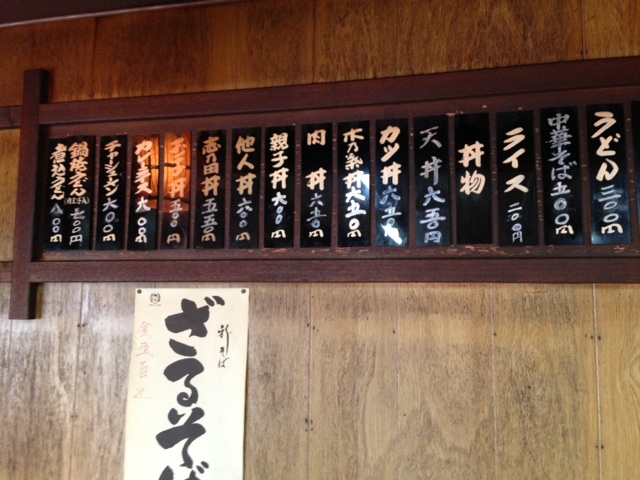 うどん 三〇〇円
中華そば 五〇〇円
ライス 二〇〇円
丼物
天丼 六五〇円
カツ丼 六五〇円
木の葉丼 六五〇円
肉丼 六五〇円
親子丼 六〇〇円
他人丼 六〇〇円
志乃田丼 五五〇円
丼 五〇〇円
カレーライス 六〇〇円
チャーシューメン 六〇〇円
鍋焼うどん 七〇〇円
煮込うどん 八〇〇円
新そば
ざるそば
金五百